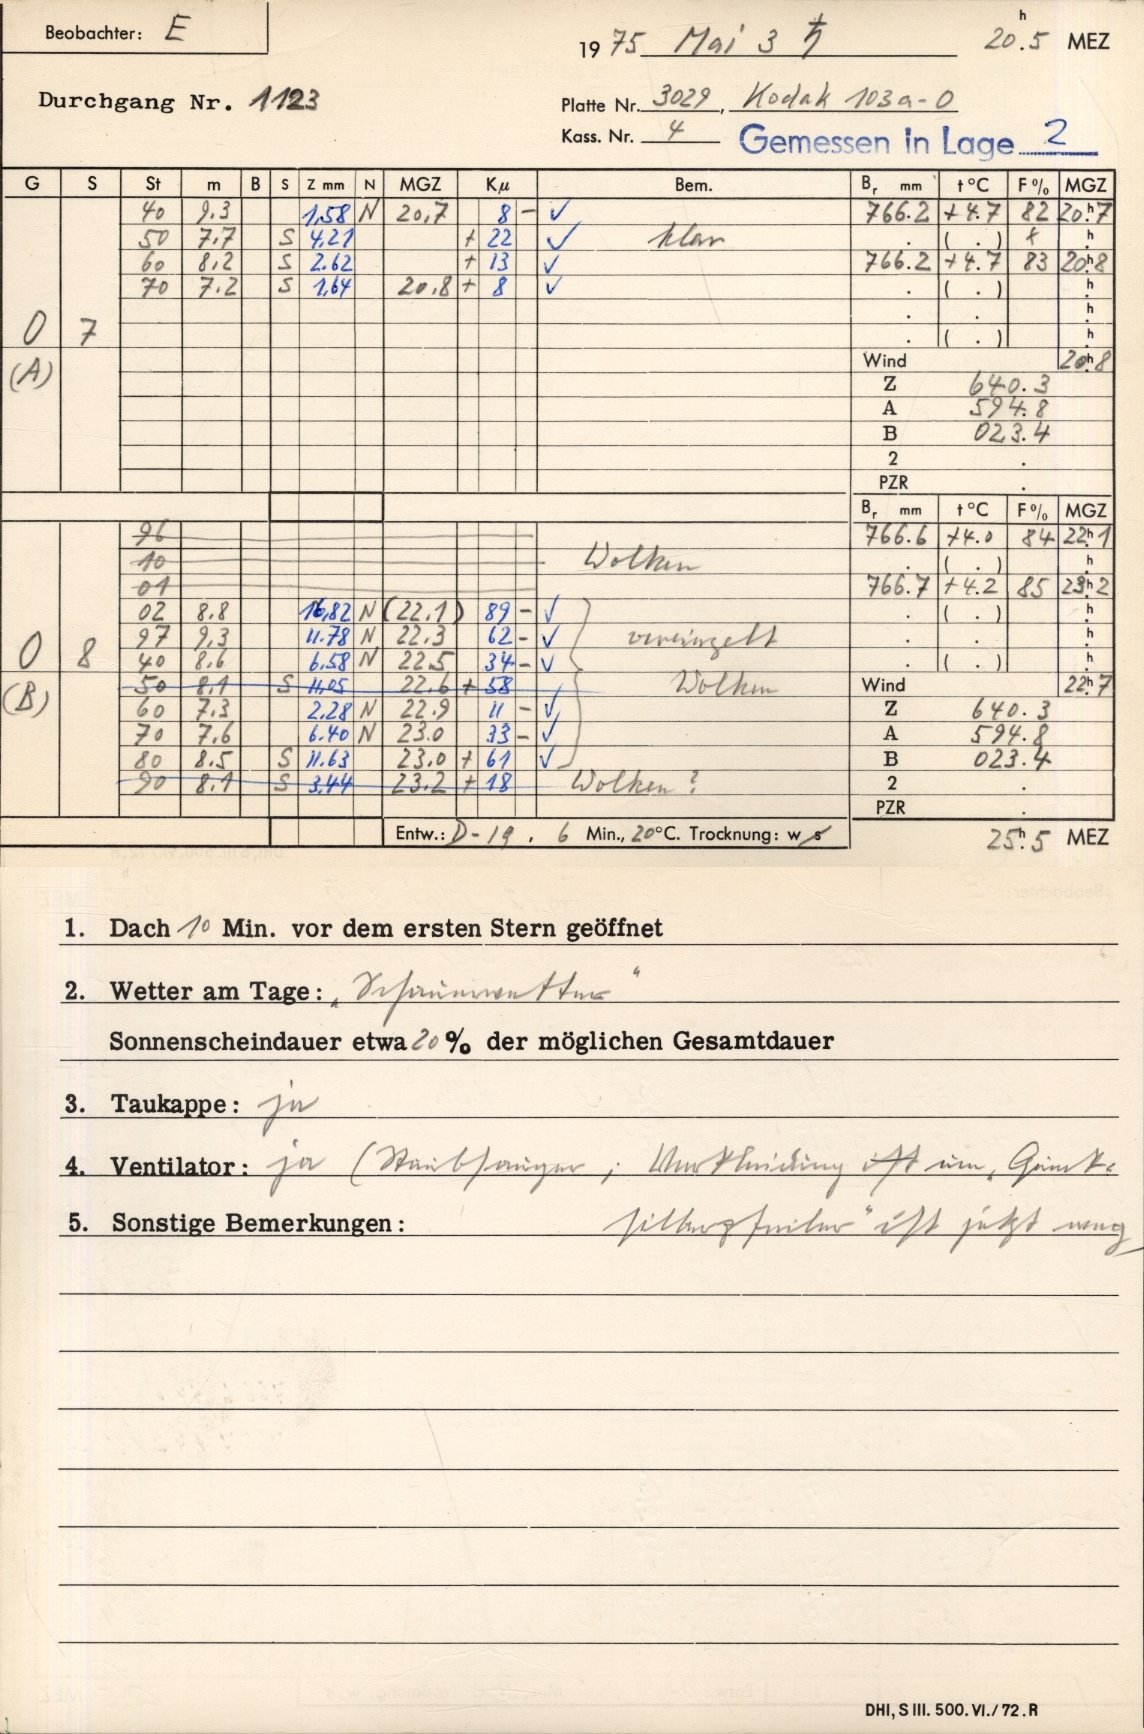 Beobachter: E
1975 Mai 3 ♄ 20h.5 MEZ
Durchgang Nr. 1123
Platte Nr. 3029, Kodak 103a-O
Kass. Nr. 4 Gemessen in Lage 2
G S St m B S Z mm N MGZ Kμ Bem. Br mm t °C F % MGZ
40 9.3 1,58 N 20,7 8 - ✓ 766.2 +4.7 82 20h.7
50 7.7 S 4.21 + 22 ✓ klar . ( . ) h.
60 8.2 S 2.62 + 13 ✓ 766.2 +4.7 83 20h.8
70 7.2 S 1,64 20.8 + 8 ✓ . ( . ) h.
. . h.
0 7 . ( . ) h.
(A) Wind 20h.8
Z 640.3
A 594.8
B 023.4
2 .
PZR .
Br mm t °C F % MGZ
96 766.6 +4.0 84 22h.1
10 Wolken . ( . ) h.
01 766.7 +4.2 85 23h.2
02 8.8 16,82 N (22.1) 89 - ✓ . ( . ) h.
97 9.3 11.78 N 22.3 62 - ✓ vereinzelt . . h.
0 8 40 8.6 6.58 N 22.5 34 - ✓ . ( . ) h.
(B) 50 8.1 S 11,05 22.6 + 58 Wolken Wind 22h.7
60 7.3 2.28 N 22.9 11 - ✓ Z 640.3
70 7.6 6.40 N 23.0 33 - ✓ A 594.8
80 8.5 S 11.63 23.0 + 61 ✓ B 023.4
90 8.1 S 3,44 23.2 + 18 Wolken? 2 .
PZR .
Entw.: D-19, 6 Min., 20°C. Trocknung: w s 25h.5 MEZ
1. Dach 10 Min. vor dem ersten Stern geöffnet
2. Wetter am Tage: „Schauerwetter“
Sonnenscheindauer etwa 20 % der möglichen Gesamtdauer
3. Taukappe: ja
4. Ventilator: ja (Staubsauger; Verkleidung ist um „Queck-
5. Sonstige Bemerkungen: silberpfeiler“ ist jetzt weg
DHI, S III. 500. VI./72. R